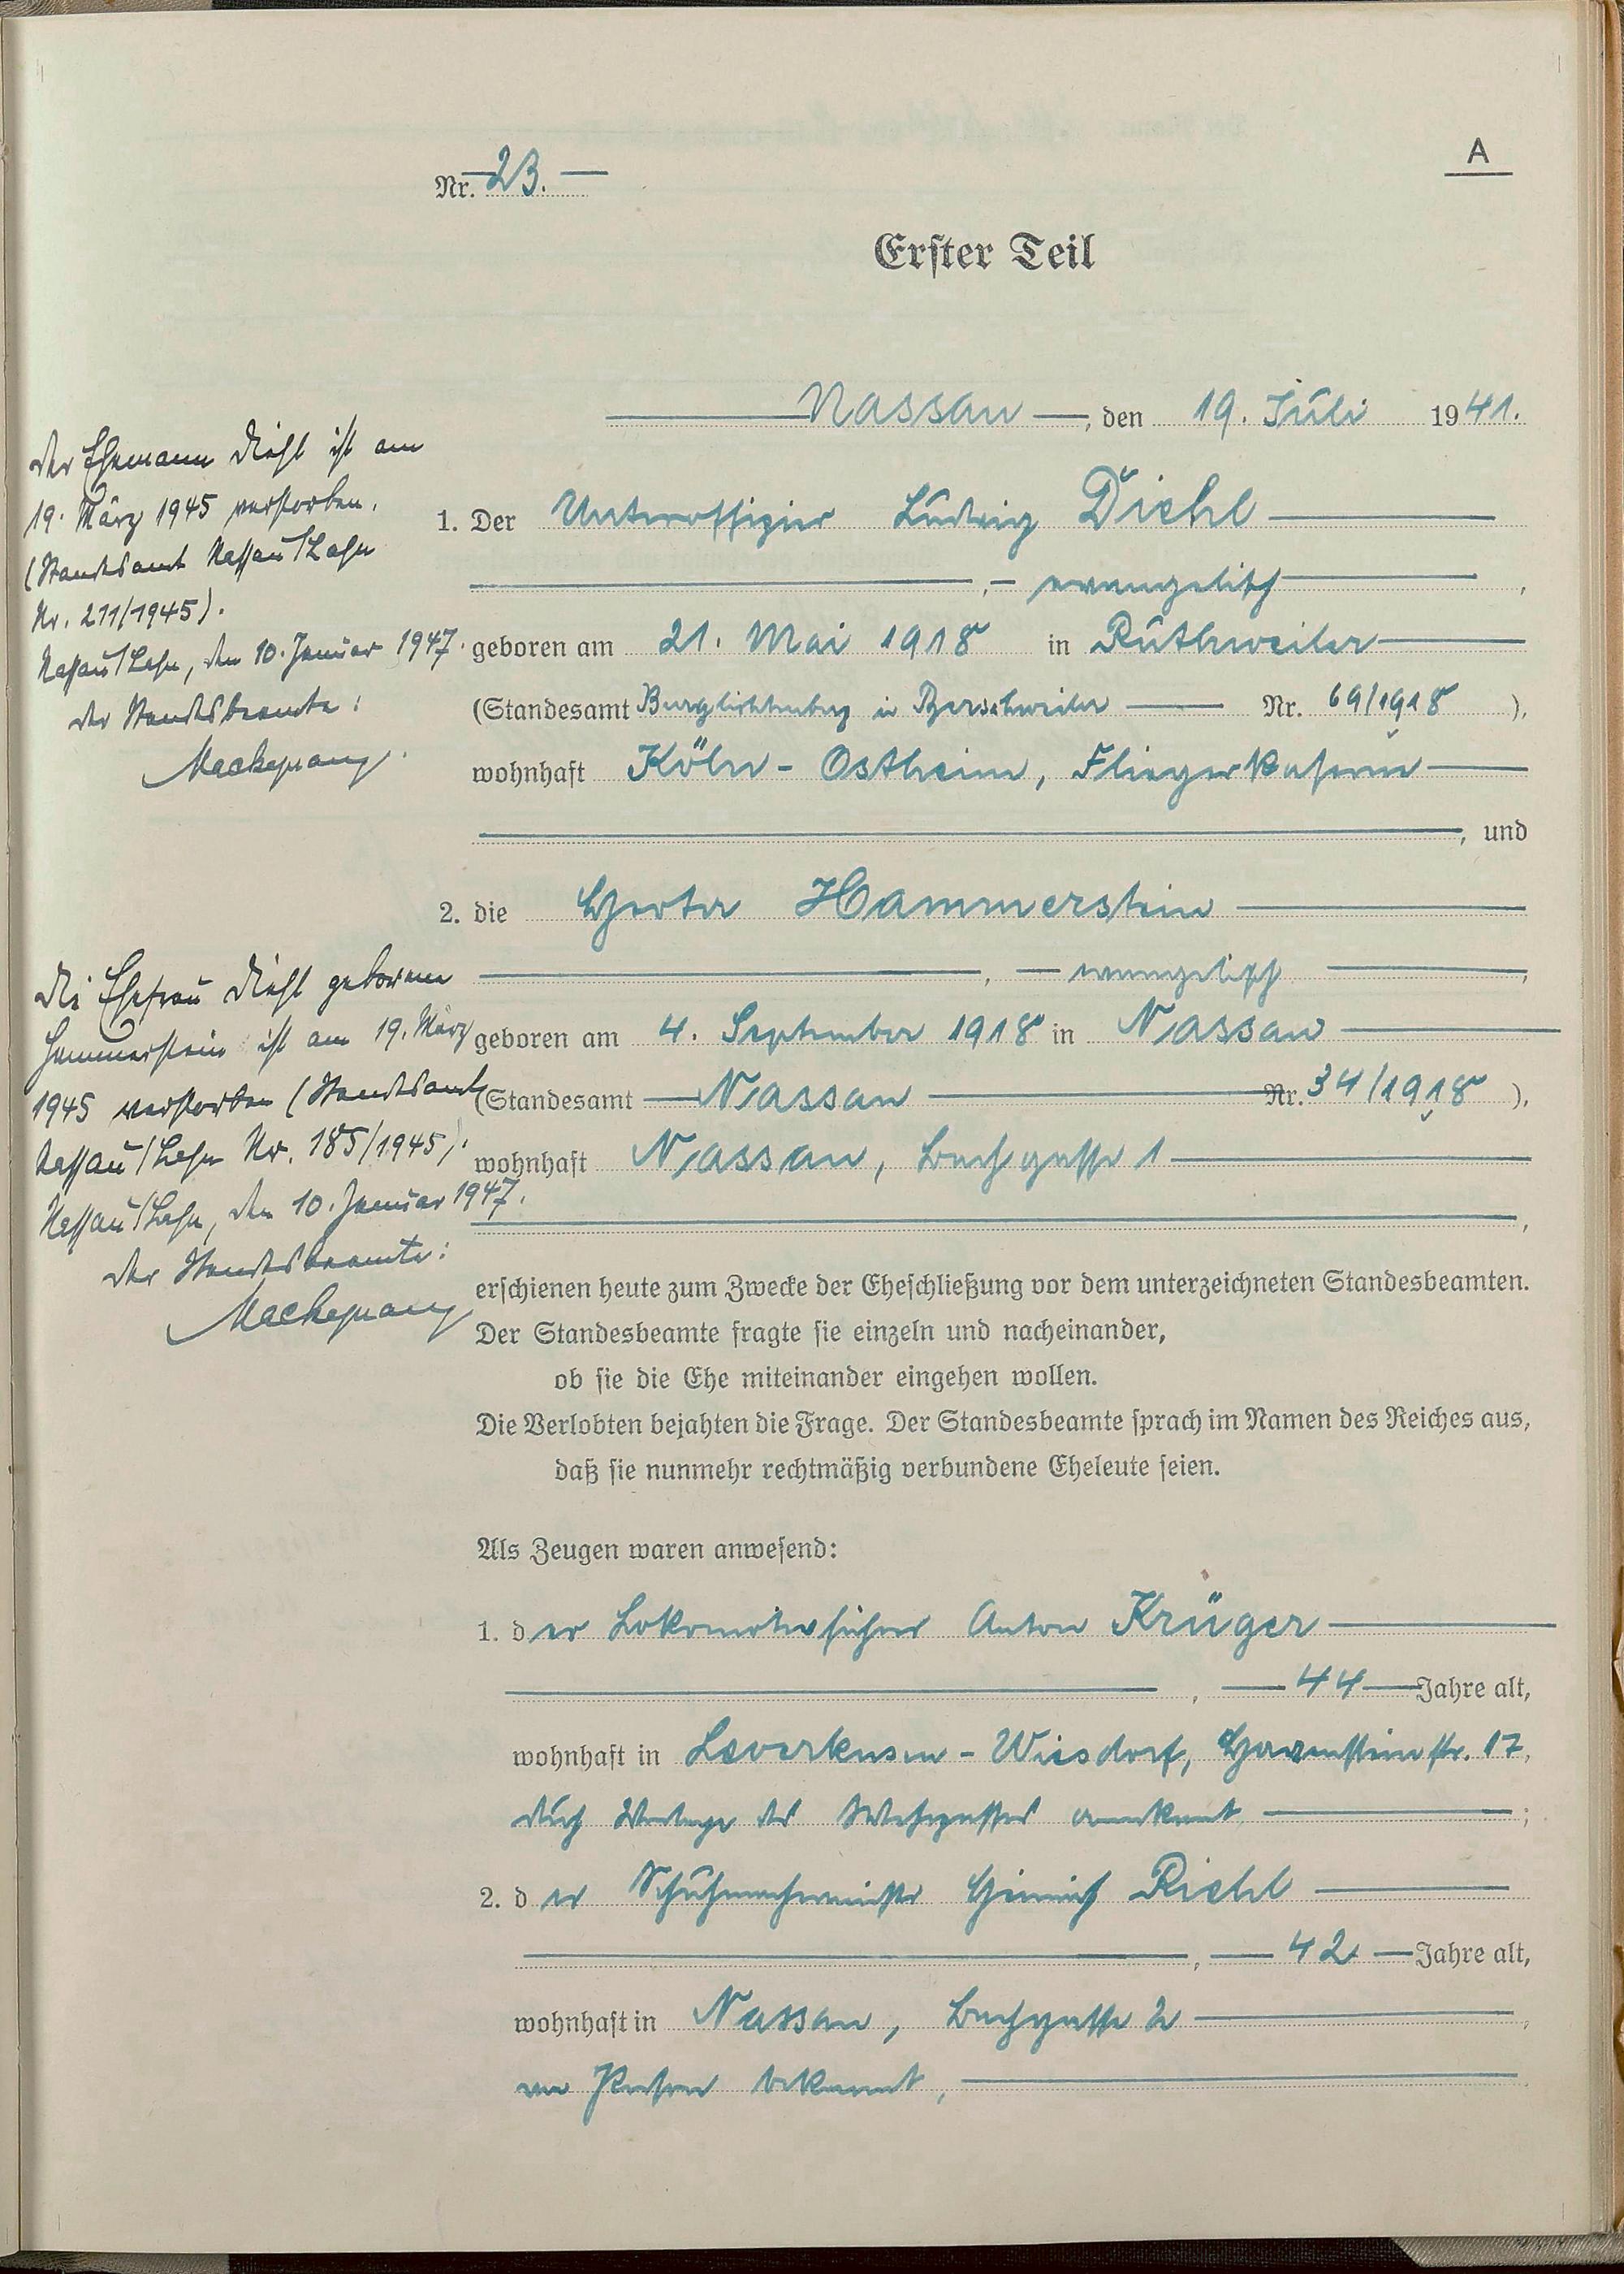 A
Nr. 23.
Erster Teil
Nassau, den 19. Juli 1941.
1. Der Unteroffizier Ludwig Diehl
, evangelisch,
geboren am 21. Mai 1918 in Ruthweiler
(Standesamt Burglichtenberg in Nr. 69/1918),
wohnhaft Köln - Ostheim, Fliegerkaserne
, und
2. die Herta Hammerstein
, evangelisch,
geboren am 4. September 1918 in Nassau
(Standesamt Nassau Nr. 34/1918),
wohnhaft Nassau, Bachgasse 1
,
erschienen heute zum Zwecke der Eheschließung vor dem unterzeichneten Standesbeamten.
Der Standesbeamte fragte sie einzeln und nacheinander,
ob sie die Ehe miteinander eingehen wollen.
Die Verlobten bejahten die Frage. Der Standesbeamte sprach im Namen des Reiches aus,
daß sie nunmehr rechtmäßig verbundene Eheleute seien.
Als Zeugen waren anwesend:
1. der Lokomotivführer Anton Krüger
, 44 Jahre alt,
wohnhaft in Leverkusen - Wiesdorf, 17,
durch Vorlage des Wehrpasses anerkannt;
2. der Schuhmachermeister Heinrich Riehl
, 42 Jahre alt,
wohnhaft in Nassau, Bachgasse 2,
von Person bekannt,
Der Ehemann Diehl ist am
19. März 1945 verstorben.
(Standesamt Nassau/Lahn
Nr. 211/1945).
Nassau/Lahn, den 10. Januar 1947.
Der Standesbeamte:
Die Ehefrau Diehl geborene
Hammerstein ist am 19. März
1945 verstorben (Standesamt
Nassau/Lahn Nr. 185/1945).
Nassau/Lahn, den 10. Januar 1947.
Der Standesbeamte: